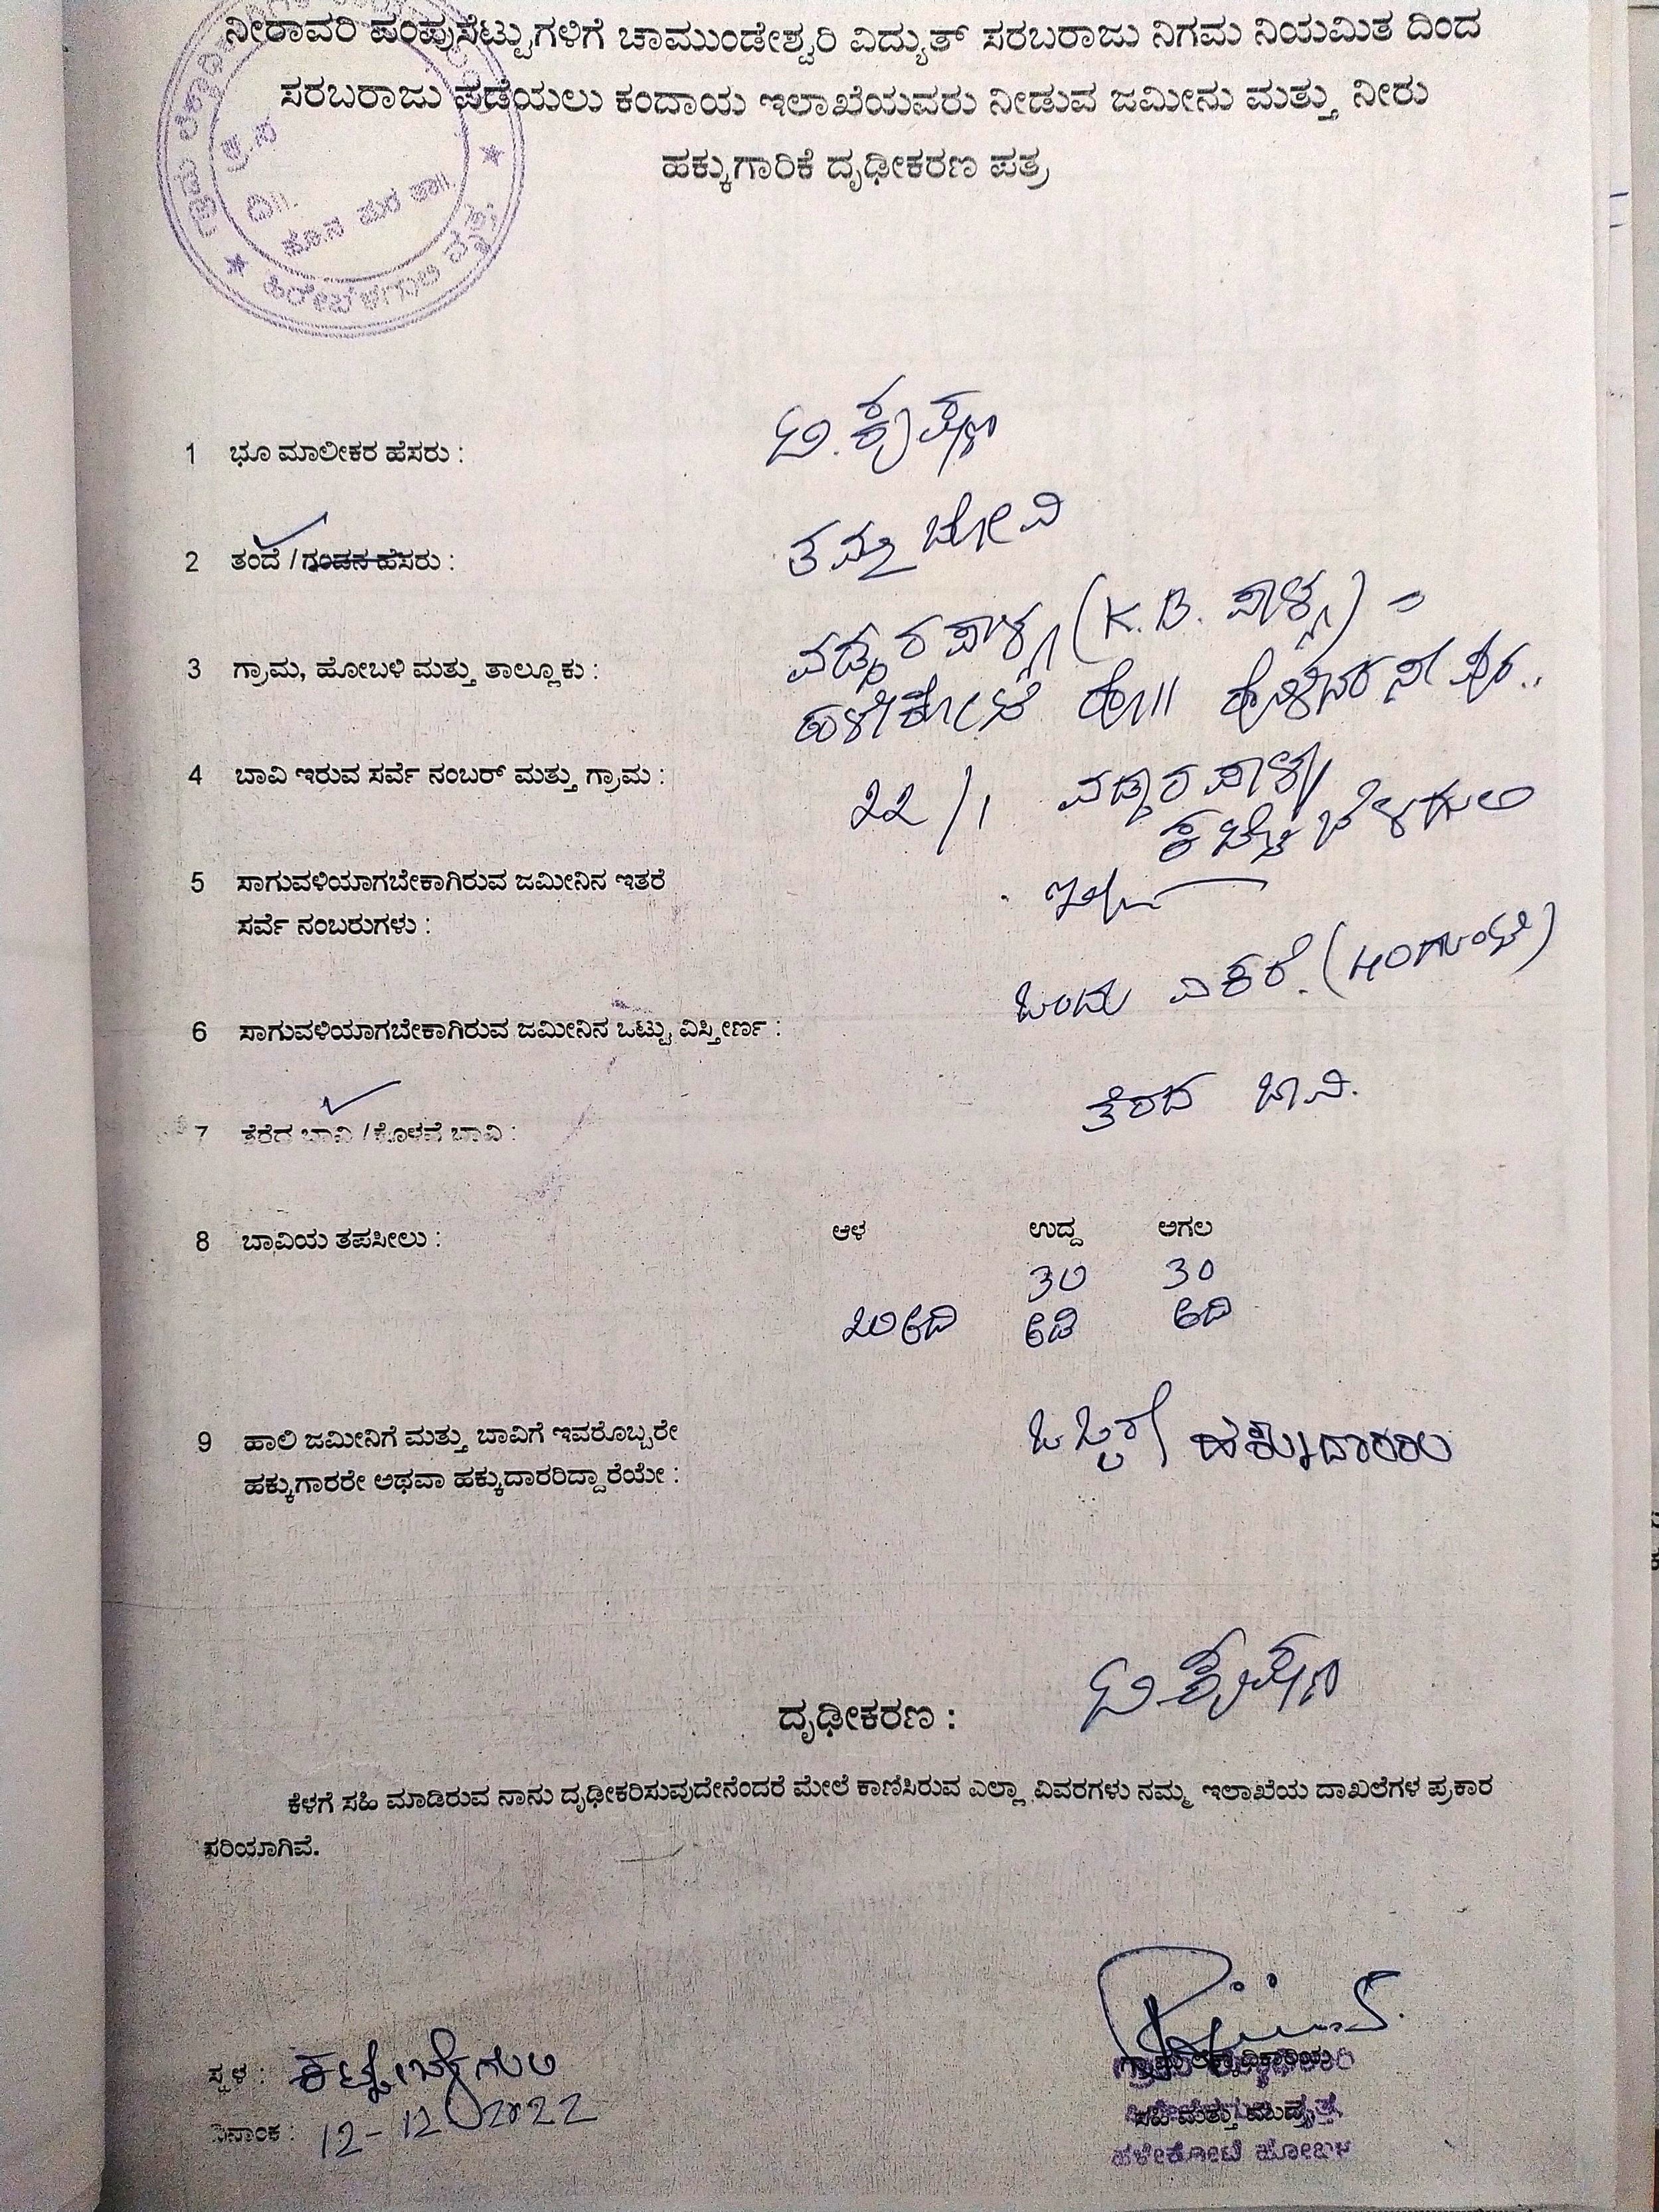 ನೀರಾವರಿ ಪಂಪುಸೆಟ್ಟುಗಳಿಗೆ ಚಾಮುಂಡೇಶ್ವರಿ ವಿದ್ಯುತ್ ಸರಬರಾಜು ನಿಗಮ ನಿಯಮಿತ ದಿಂದ
ಸರಬರಾಜು ಪಡೆಯಲು ಕಂದಾಯ ಇಲಾಖೆಯವರು ನೀಡುವ ಜಮೀನು ಮತ್ತು ನೀರು
ಹಕ್ಕುಗಾರಿಕೆ ದೃಢೀಕರಣ ಪತ್ರ
ದಿ||.
1 ಭೂ ಮಾಲೀಕರ ಹೆಸರು : ಟಿ.ಕೃಷ್ಣ
2 ತಂದೆ / ಗಂಡನ ಹೆಸರು : ತಮ್ಮ ಬೋವಿ
3 ಗ್ರಾಮ, ಹೋಬಳಿ ಮತ್ತು ತಾಲ್ಲೂಕು : ವಡ್ಡರಪಾಳ್ಯ (K.B. ಪಾಳ್ಯ) =
ಹಳೇಕೋಟೆ ಹೋ||
4 ಬಾವಿ ಇರುವ ಸರ್ವೆ ನಂಬರ್ ಮತ್ತು ಗ್ರಾಮ : 22/1 ವಡ್ಡರಪಾಳ್ಯ
5 ಸಾಗುವಳಿಯಾಗಬೇಕಾಗಿರುವ ಜಮೀನಿನ ಇತರೆ
ಸರ್ವೆ ನಂಬರುಗಳು :
6 ಸಾಗುವಳಿಯಾಗಬೇಕಾಗಿರುವ ಜಮೀನಿನ ಒಟ್ಟು ವಿಸ್ತೀರ್ಣ : ಒಂದು ಎಕರೆ. (40ಗುಂಟೆ)
7 ತೆರೆದ ಬಾವಿ / ಕೊಳವೆ ಬಾವಿ : ತೆರದ ಬಾವಿ.
8 ಬಾವಿಯ ತಪಸೀಲು : ಆಳ ಉದ್ದ ಅಗಲ
30 30
20 ಅಡಿ ಅಡಿ ಅಡಿ
9 ಹಾಲಿ ಜಮೀನಿಗೆ ಮತ್ತು ಬಾವಿಗೆ ಇವರೊಬ್ಬರೇ ಒಬ್ಬರೇ ಹಕ್ಕುದಾರರು
ಹಕ್ಕುಗಾರರೇ ಅಥವಾ ಹಕ್ಕುದಾರರಿದ್ದಾರೆಯೇ :
ದೃಢೀಕರಣ : ಟಿ.ಕೃಷ್ಣ
ಕೆಳಗೆ ಸಹಿ ಮಾಡಿರುವ ನಾನು ದೃಢೀಕರಿಸುವುದೇನೆಂದರೆ ಮೇಲೆ ಕಾಣಿಸಿರುವ ಎಲ್ಲಾ ವಿವರಗಳು ನಮ್ಮ ಇಲಾಖೆಯ ದಾಖಲೆಗಳ ಪ್ರಕಾರ
ಸರಿಯಾಗಿವೆ.
ಸ್ಥಳ :
ದಿನಾಂಕ : 12-12-2022
ಸಹಿ ಮತ್ತು ಮುದ್ರೆ
ಹಳೇಕೋಟೆ ಹೋಬಳಿ